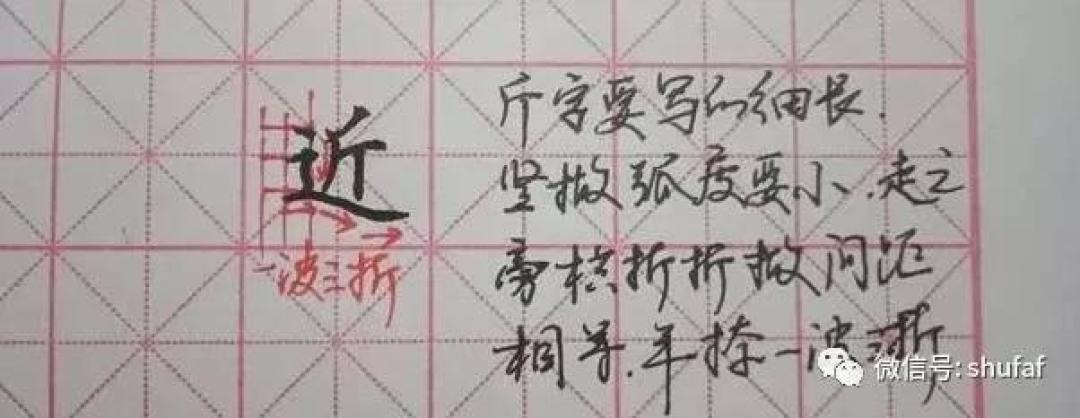 近
一波三折
斤字要写的细长.
竖撇弧度要小.走之
旁横折折撇间距
相等.平捺一波三折
微信号: shufaf